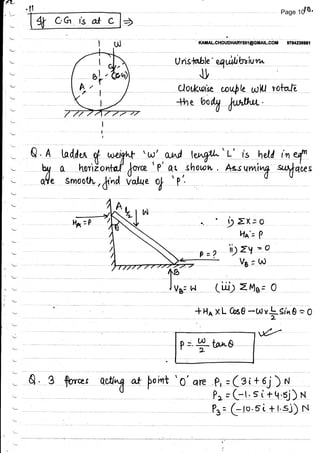 Page 10
If C.G is at C ⇒
KAMAL.CHOUDHARY891@GMAIL.COM 9784239891
W
C
B (CG)
A
Unstable equilibrium
⇓
Clockwise couple will rotate
the body further.
Q. A ladder of weight 'W' and length 'L' is held in eqm
by a horizontal force 'P' as shown. Assuming surfaces
are smooth, find value of 'P'.
A
L/2
W
HA = P
θ
P = ?
B
VB = W
i) ΣX = 0
HA = P
ii) ΣY = 0
VB = W
(iii) ΣMB = 0
+HA × L Cosθ − W × L/2 Sinθ = 0
P = W/2 tanθ
Q. 3 forces acting at point 'O' are P1 = (3i + 6j) N
P2 = (-1.5i + 4.5j) N
P3 = (-10.5i + 1.5j) N